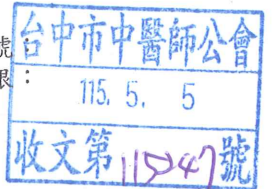 號
限：
台中市中醫師公會
115. 5. 5
收文第115247號